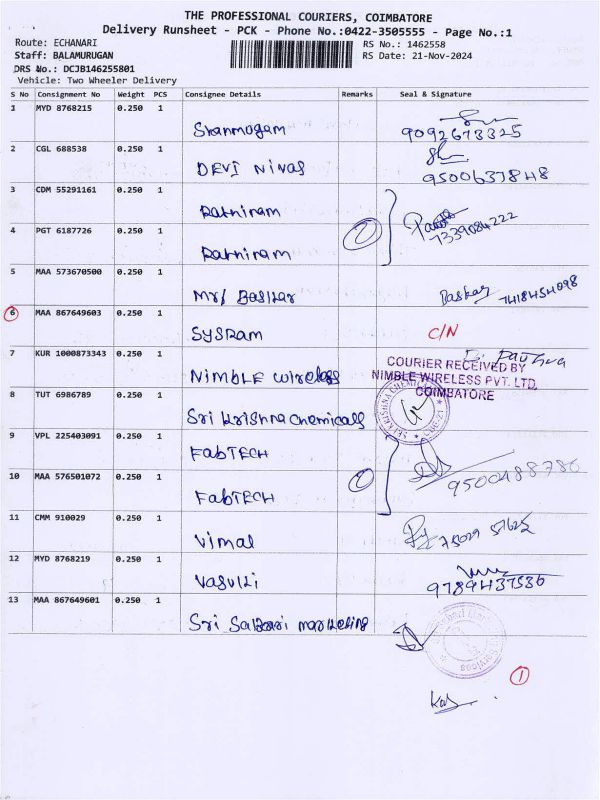 THE PROFESSIONAL COURIERS, COIMBATORE
Delivery Runsheet - PCK - Phone No.:0422-3505555 - Page No.:1
Route: ECHANARI RS No.: 1462558
Staff: BALAMURUGAN RS Date: 21-Nov-2024
DRS No.: DCJB146255801
Vehicle: Two Wheeler Delivery
S No Consignment No Weight PCS Consignee Details Remarks Seal & Signature
1 MYD 8768215 0.250 1 Shanmogam 9092673325
2 CGL 688538 0.250 1 DEVI NIVAS 9500637848
3 CDM 55291161 0.250 1 Ratniram
7339084222
4 PGT 6187726 0.250 1 Ratniram
5 MAA 573670500 0.250 1 Mr/ Baskar Baskar 7418454098
6 MAA 867649603 0.250 1 SYSRAM C/N
7 KUR 1000873343 0.250 1 NIMBLE wireless
COURIER RECEIVED BY
NIMBLE WIRELESS PVT. LTD.
COIMBATORE
8 TUT 6986789 0.250 1 Sri Krishna chemicals
9 VPL 225403091 0.250 1 FabTECH
10 MAA 576501072 0.250 1 FabTECH 9500488786
11 CMM 910029 0.250 1 Vimal 75029 51625
12 MYD 8768219 0.250 1 Vasuki 9789437536
13 MAA 867649601 0.250 1 Sri Sabari marketing
1